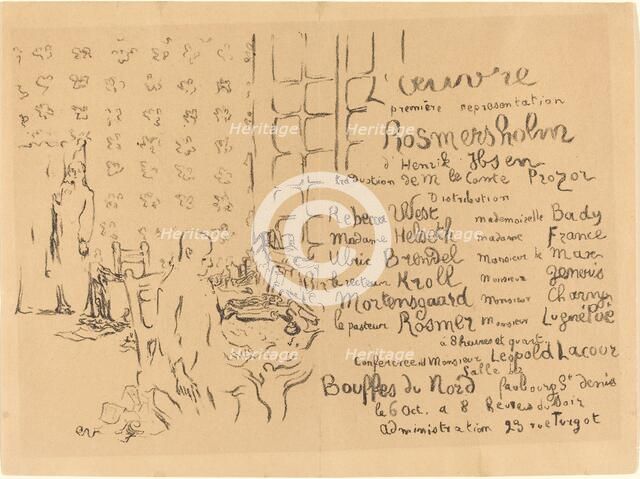 L'œuvre
première representation
Rosmersholm
d'Henrik Ibsen
traduction de M le Comte Prozor
Distribution
Rebecca West mademoiselle Bady
Madame Helseth madame France
Ulric Brendel Monsieur de Max
le recteur Kroll Monsieur
Mortensgaard Monsieur Charny
le pasteur Rosmer Monsieur Lugné Poë
à 8 heures et quart.
Conference de Monsieur Leopold Lacour
Salle des
Bouffes du Nord faubourg St denis
le 6 Oct. a 8 heures du Soir
administration 23 rue Turgot
ev
Heritage
Heritage
Heritage
Heritage
Heritage
Heritage
Heritage
Heritage